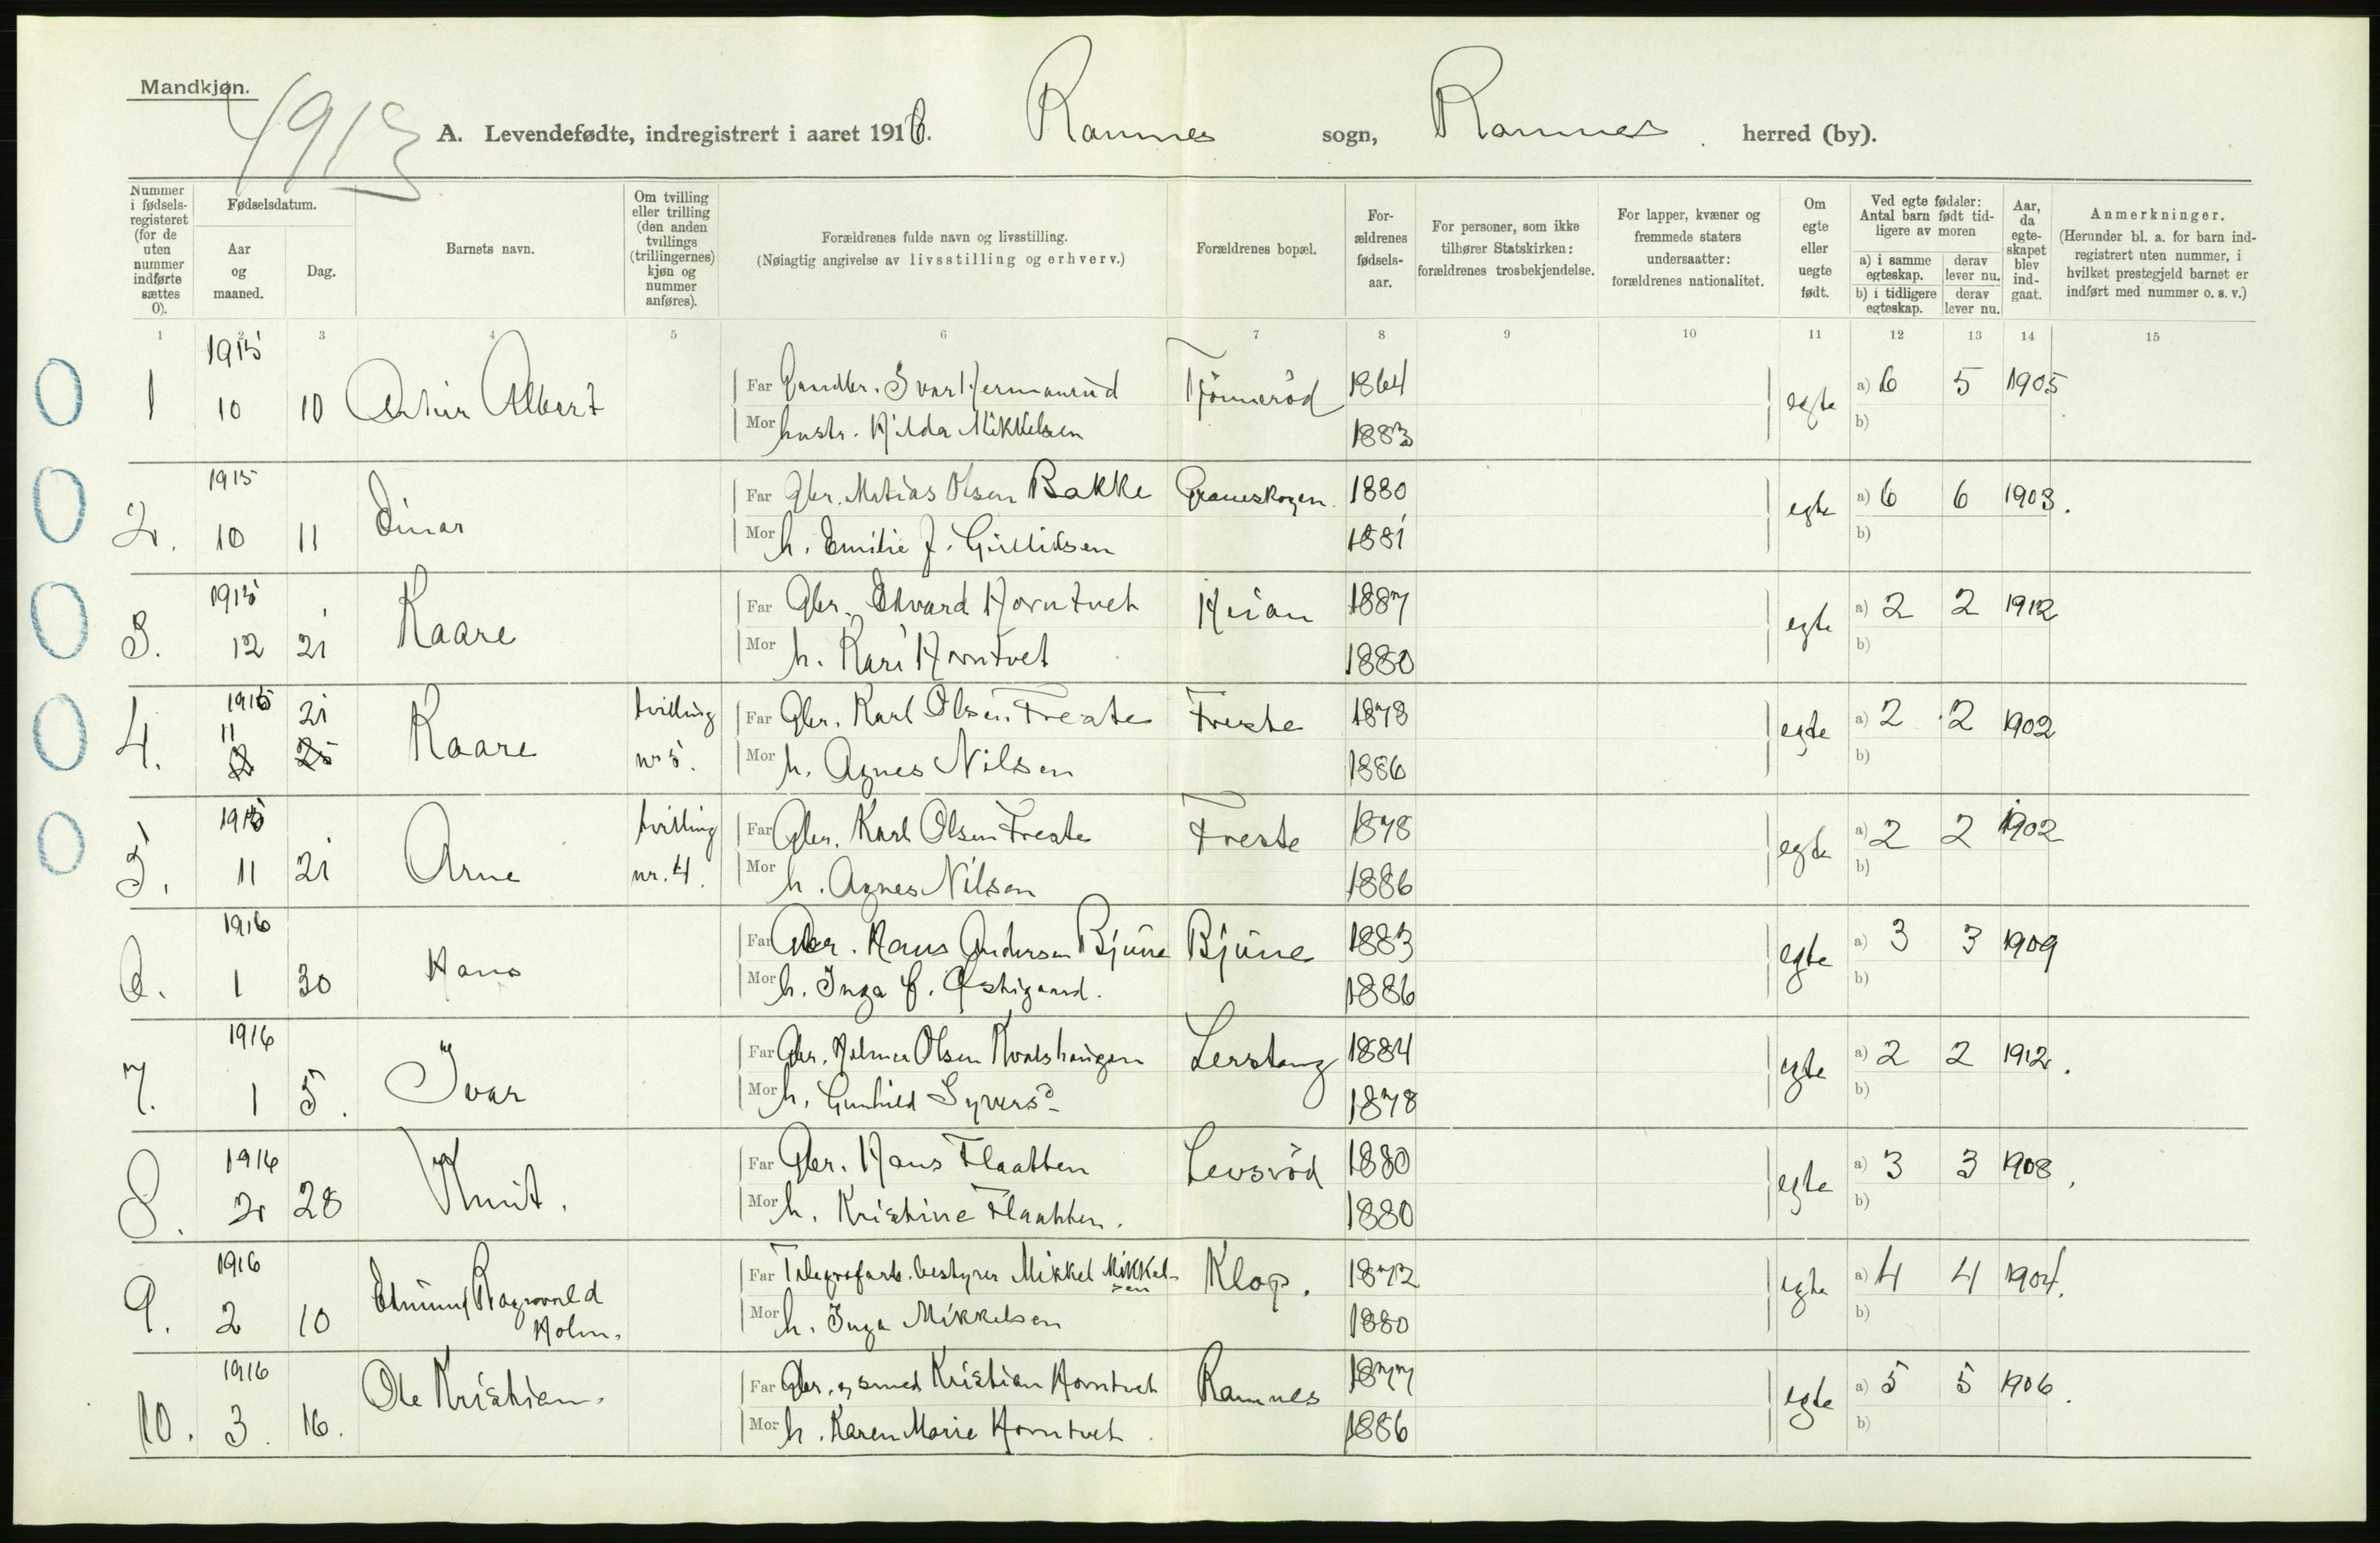 Mandkjøn.
1915
A. Levendefødte, indregistrert i aaret 1916. Ramnes sogn, Ramnes herred (by).
Nummer i fødselsregisteret (for de uten nummer indførte sættes 0).
Fødselsdatum.
Aar og maaned.
Dag.
Barnets navn.
Om tvilling eller trilling (den anden tvillings (trillingernes) kjøn og nummer anføres).
Forældrenes fulde navn og livsstilling.
(Nøiagtig angivelse av livsstilling og erhverv.)
Forældrenes bopæl.
Forældrenes fødselsaar.
For personer, som ikke tilhører Statskirken: forældrenes trosbekjendelse.
For lapper, kvæner og fremmede staters undersaatter: forældrenes nationalitet.
Om egte eller uegte født.
Ved egte fødsler: Antal barn født tidligere av moren
a) i samme egteskap. derav lever nu.
b) i tidligere egteskap. derav lever nu.
Aar, da egteskapet blev indgaat.
Anmerkninger.
(Herunder bl. a. for barn indregistrert uten nummer, i hvilket prestegjeld barnet er indført med nummer o. s. v.)
1 2 3 4 5 6 7 8 9 10 11 12 13 14 15
1 1915 10 10 Albert Far Ivar Hermansrud 1864 egte a) 6 5 1905
Mor hustr. Hilda Mikkelsen 1883 b)
2. 1915 10 11 Einar Far Gbr. Matias Olsen Bakke 1880 egte a) 6 6 1903.
Mor h. Emilie J. Gulliksen 1881 b)
3. 1915 12 21 Kaare Far Gbr. Edvard Horntvet 1887 egte a) 2 2 1912
Mor h. Kari Horntvet 1880 b)
4. 1915 11 21 12 25 Kaare tvilling nr 5. Far Gbr. Karl Olsen Freste Freste 1878 egte a) 2 2 1902
Mor h. Agnes Nilsen 1886 b)
5. 1915 11 21 Arne tvilling nr. 4. Far Gbr. Karl Olsen Freste Freste 1878 egte a) 2 2 1902
Mor h. Agnes Nilsen 1886 b)
6. 1916 1 30 Hans Far Gbr. Hans Andersen Bjune Bjune 1883 egte a) 3 3 1909
Mor h. Inga Østigaard. 1886 b)
7. 1916 1 5. Ivar Far Gbr. Olsen Kvalshaugen Lerstang 1884 egte a) 2 2 1912.
Mor h. Gunhild Syvers 1878 b)
8. 1916 2 28 Knut. Far Gbr. Hans Flaatten Levsrød 1880 egte a) 3 3 1908.
Mor h. Kristine Flaatten. 1880 b)
9. 1916 2 10 Edmund Ragnvald Holm. Far bestyrer Mikkel Mikkelsen Klop. 1872 egte a) 4 4 1904.
Mor h. Inga Mikkelsen 1880 b)
10. 1916 3. 16. Ole Kristian. Far Gbr. og smed Kristian Horntvet Ramnes 1877 egte a) 5 5 1906.
Mor h. Karen Marie Horntvet 1886 b)